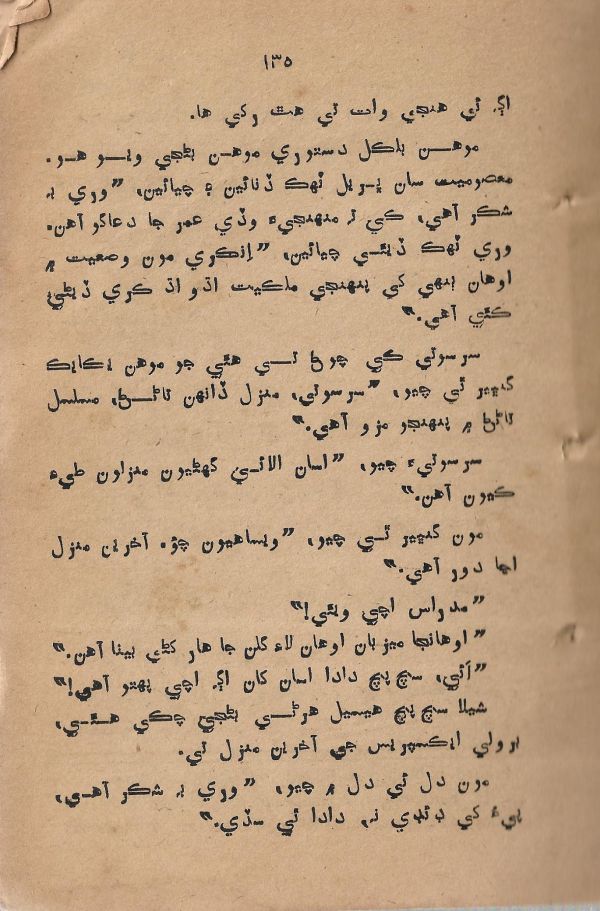 ١٣٥
اڳ ئي هنجي وات تي هٿ رکي ها.
موهن بلڪل دستوري موهن بڻجي ويو هو.
معصوميت سان ڀريل ٽهڪ ڏنائين ۽ چيائين، ”وري به
شڪر آهي، ڪي ته منهنجيءَ وڏي عمر جا دعاگو آهن.
وري ٽهڪ ڏيئي چيائين، ”انڪري مون وصعيت ۾
اوهان ٻنهي کي پنهنجي ملڪيت اڌو اڌ ڪري ڏيڻي
ڪئي آهي.“
سرسوتي ڪي چوڻ ٿي هئي جو موهن يڪايڪ
گنڀير ٿي چيو، ”سرسوتي، منزل ڏانهن تاڻڻ، مسلسل
تاڻڻ ۾ پنهنجو مزو آهي.“
سرسوتيءَ چيو، ”اسان الائي گهڻيون منزلون طيءِ
ڪيون آهن.“
مون گنڀير ٿي چيو، ”ويساهيون چؤ. آخرين منزل
اڃا دور آهي.“
”مدراس اچي ويئي!“
”اوهانجا ميزبان اوهان لاءِ گلن جا هار کڻي بيٺا آهن.“
”آئي، سچ پچ دادا اسان کان اڳ اچي پهتو آهي!“
شيلا سچ پچ هيسيل هرڻي بڻجي چڪي هئي،
برولي ايڪسپريس جي آخرين منزل تي.
مون دل ئي دل ۾ چيو، ”وري به شڪر آهي،
ٻيءَ کي ڊٽڊي نه، دادا ئي سڏي.“